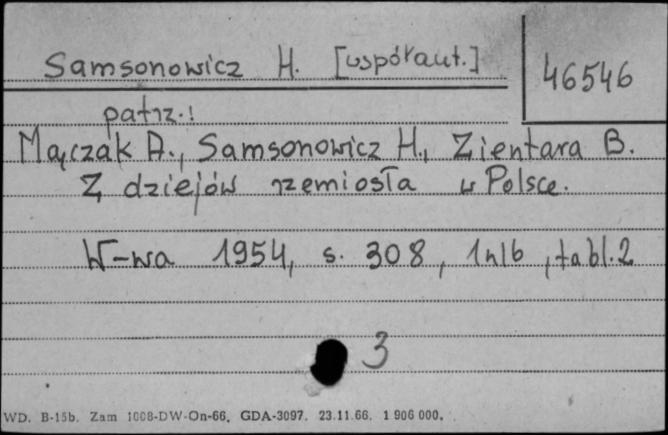 Samsonowicz H. [współaut.]
46546
patrz.:
Mączak A., Samsonowicz H., Zientara B.
Z dziejów rzemiosła w Polsce.
W-wa 1954, s. 308, 1nlb, tabl.2
3
WD. B-15b. Zam 1008-DW-On-66. GDA-3097. 23.11.66. 1 906 000.